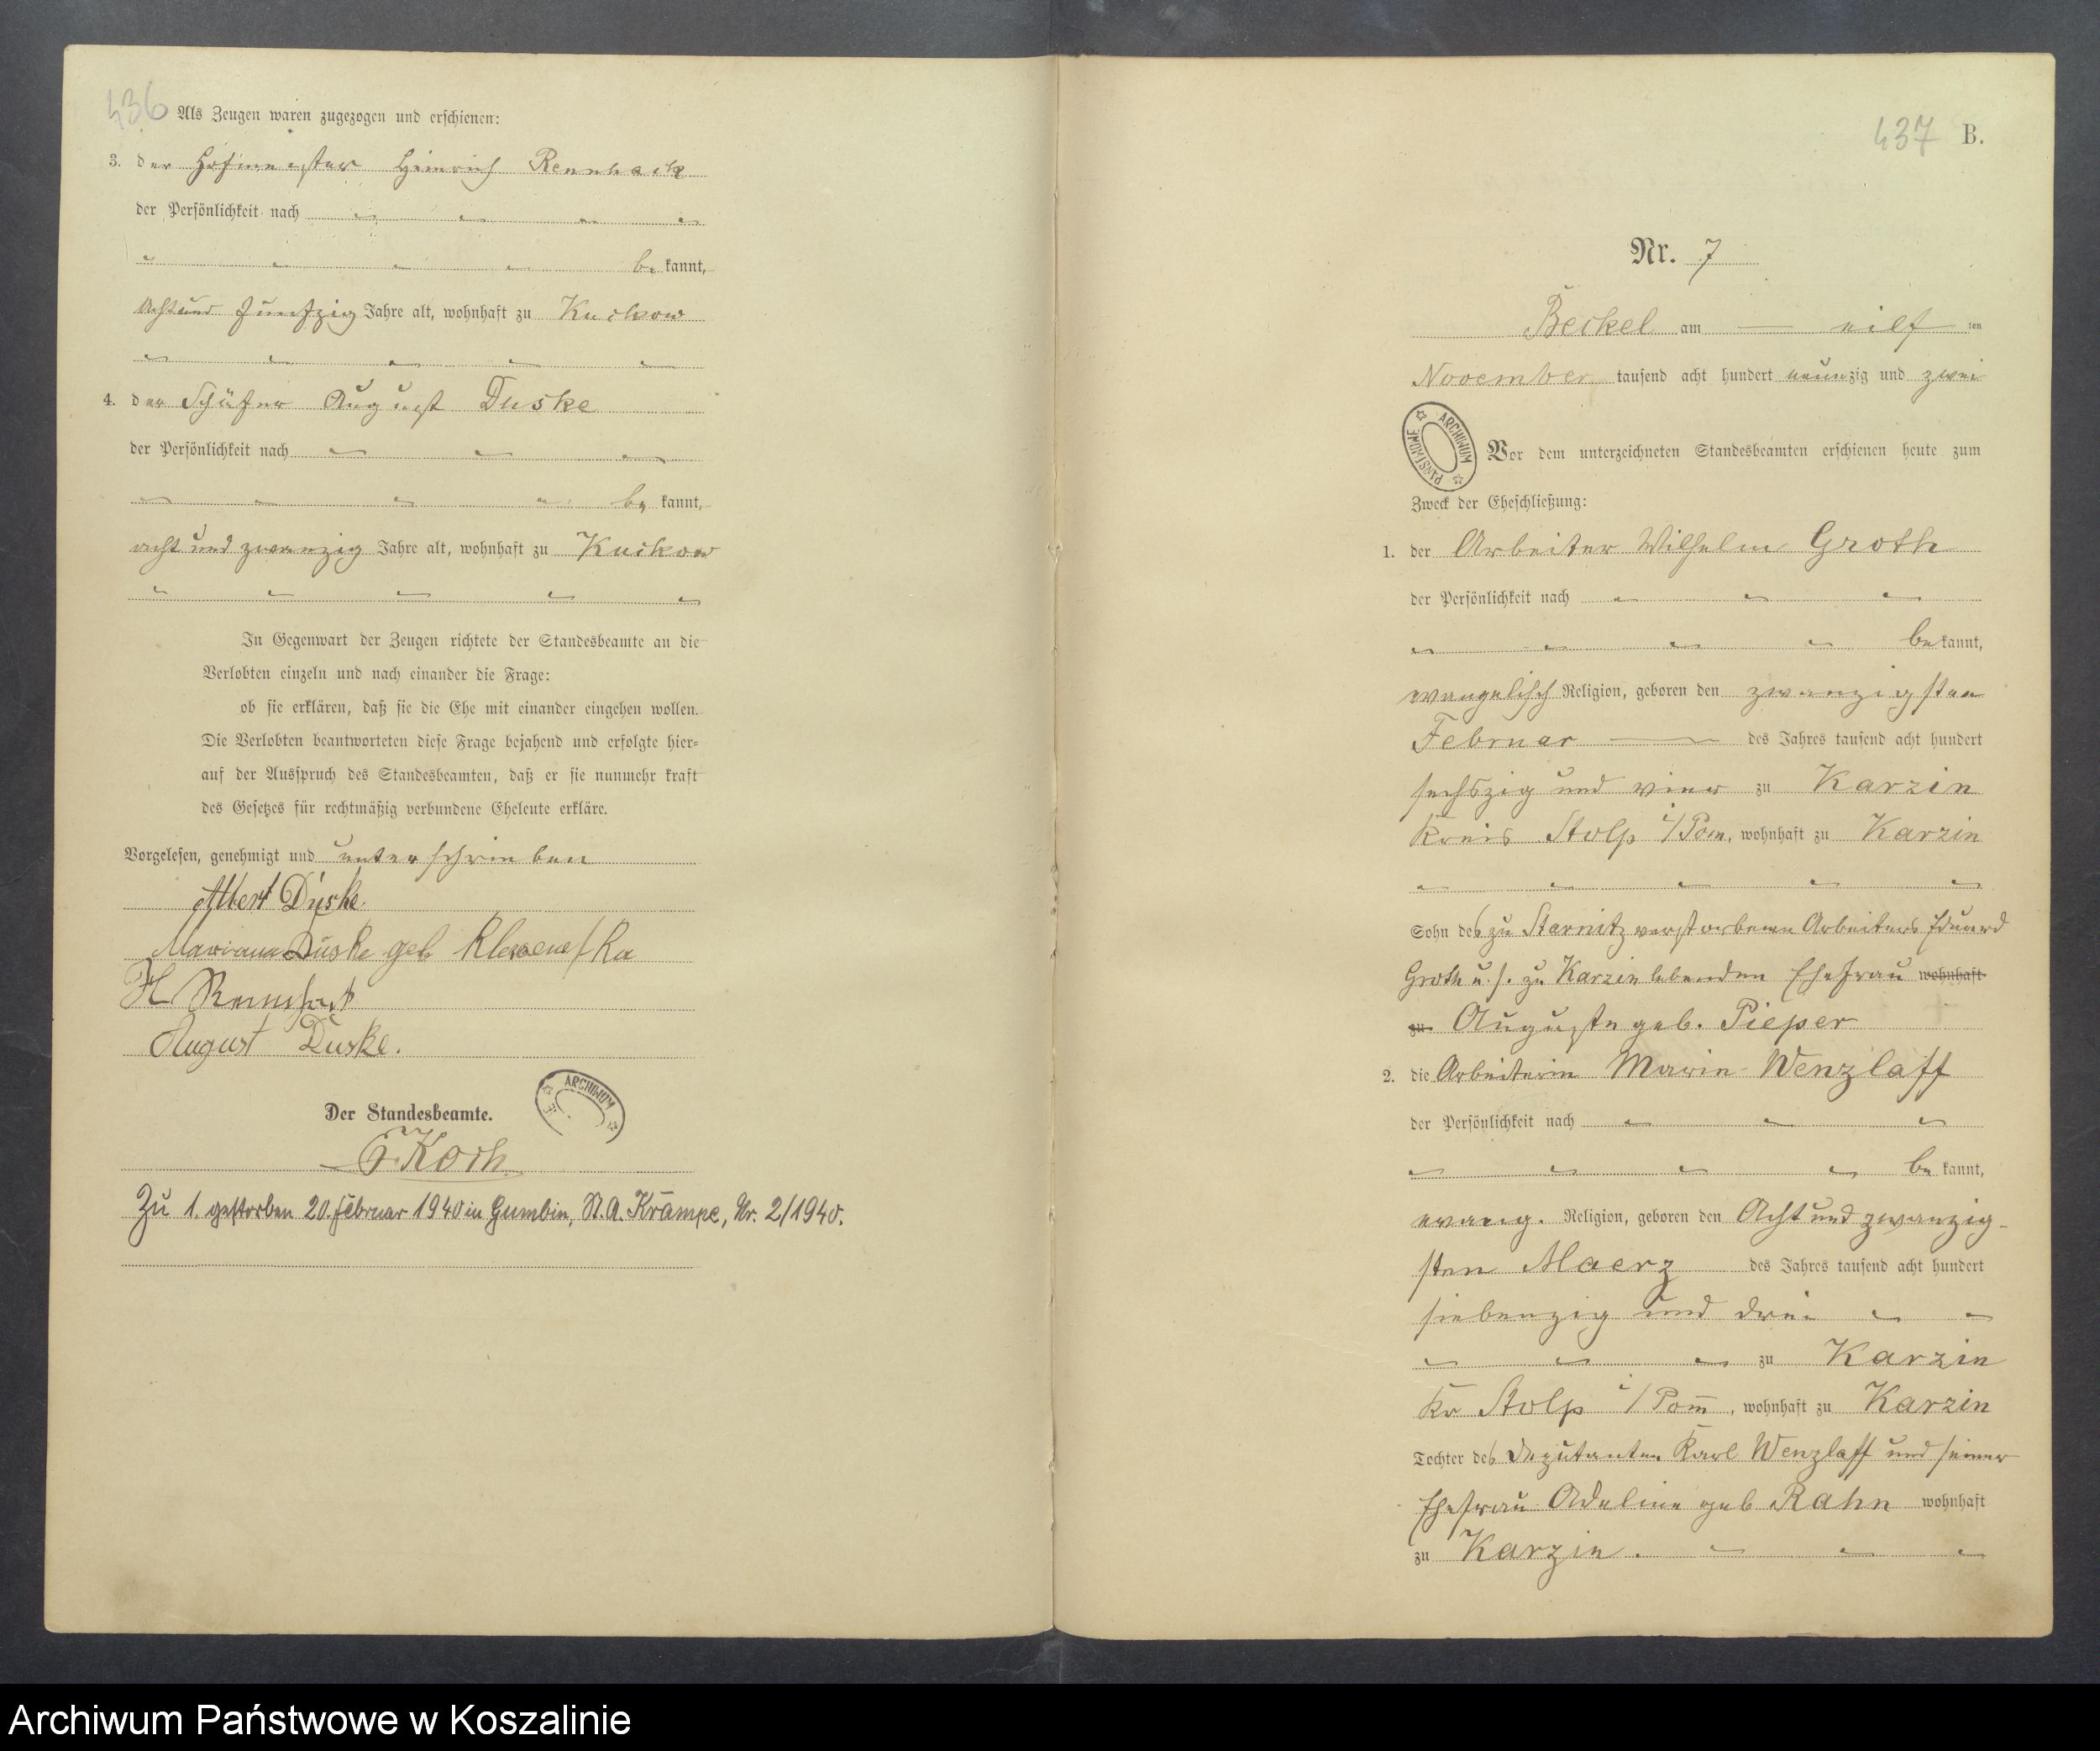 436
Als Zeugen waren zugezogen und erschienen:
3. der Hofmeister Heinrich Rennhack
der Persönlichkeit nach
be kannt,
Acht und fünfzig Jahre alt, wohnhaft zu Kuckow
4. der Schäfer August Duske
der Persönlichkeit nach
be kannt,
acht und zwanzig Jahre alt, wohnhaft zu Kuckow
In Gegenwart der Zeugen richtete der Standesbeamte an die
Verlobten einzeln und nach einander die Frage:
ob sie erklären, daß sie die Ehe mit einander eingehen wollen.
Die Verlobten beantworteten diese Frage bejahend und erfolgte hier=
auf der Ausspruch des Standesbeamten, daß er sie nunmehr kraft
des Gesetzes für rechtmäßig verbundene Eheleute erkläre.
Vorgelesen, genehmigt und unterschrieben
Albert Duske
Mariana Duske geb
H Rennhack
August Duske.
ARCHIWUM
Der Standesbeamte.
Koch
Zu 1. gestorben 20. Februar 1940 in Gumbin, St. A. Krampe, Nr. 2/1940.
437 B.
Nr. 7
Beckel am — eilf ten
November tausend acht hundert neunzig und zwei
ARCHIWUM PAŃSTWOWE
Vor dem unterzeichneten Standesbeamten erschienen heute zum
Zweck der Eheschließung:
1. der Arbeiter Wilhelm Groth
der Persönlichkeit nach
be kannt,
evangelisch Religion, geboren den zwanzigsten
Februar — des Jahres tausend acht hundert
sechszig und vier zu Karzin
Kreis Stolp i/Pom, wohnhaft zu Karzin
Sohn des zu Starnitz verstorbenen Arbeiters Eduard
Groth u. s. zu Karzin lebenden Ehefrau wohnhaft
zu Auguste geb. Pieper
2. die Arbeiterin Marie Wenzlaff
der Persönlichkeit nach
be kannt,
evang. Religion, geboren den Acht und zwanzig-
sten Maerz des Jahres tausend acht hundert
siebenzig und drei
zu Karzin
Kr Stolp i/Pom̄, wohnhaft zu Karzin
Tochter des Deputanten Karl Wenzlaff und seiner
Ehefrau Adeline geb Rahn wohnhaft
zu Karzin.
Archiwum Państwowe w Koszalinie